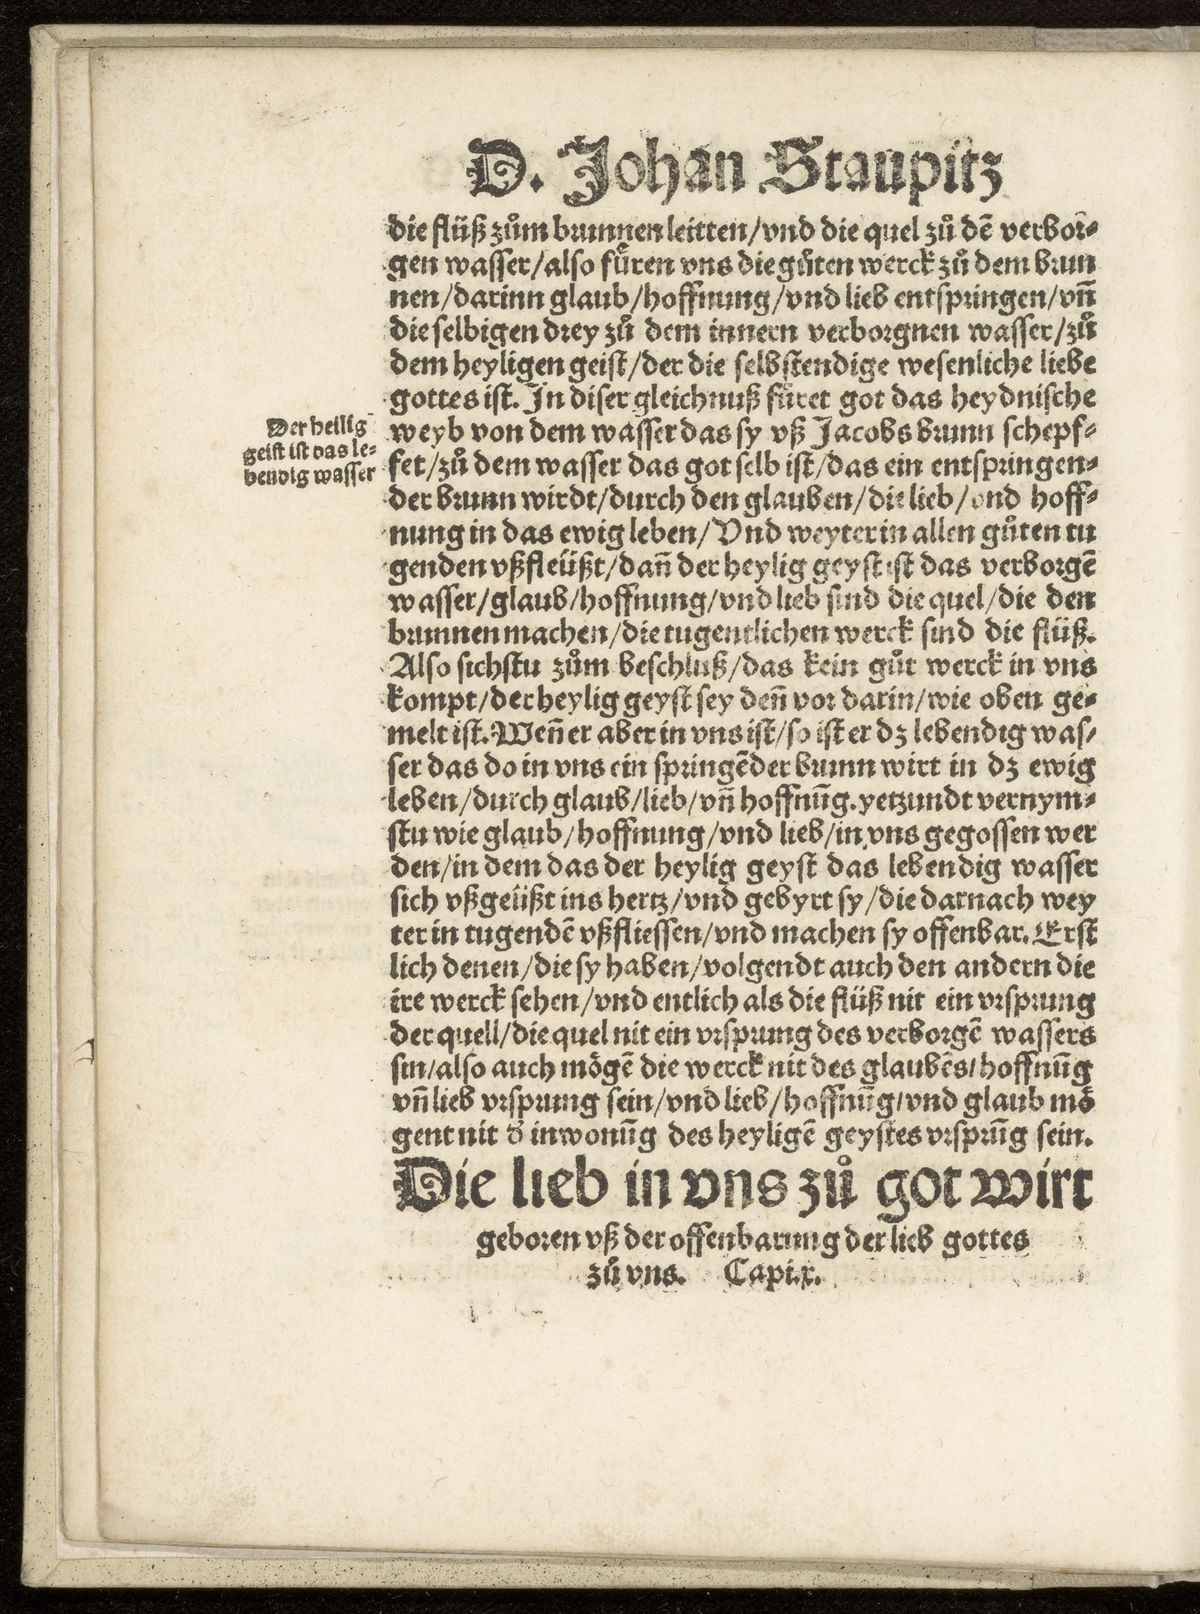 D. Johan Staupitz
die flüß zům brunnen leitten/vnd die quel zů dẽ verbor-
gen wasser/also fůren vns die gůten werck zů dem brun
nen/darinn glaub/hoffnung/vnd lieb entspringen/vñ
die selbigen drey zů dem innern verborgnen wasser/zů
dem heyligen geist/der die selbstendige wesenliche liebe
gottes ist. In diser gleichnuß füret got das heydnische
Der heilig
geist ist das le-
bendig wasser
weyb von dem wasser das sy vß Jacobs brunn schepf-
fet/zů dem wasser das got selb ist/das ein entspringen-
der brunn wirdt/durch den glauben/die lieb/vnd hoff-
nung in das ewig leben/Vnd weyter in allen gůten tu
genden vßfleüßt/dañ der heylig geyst ist das verborgẽ
wasser/glaub/hoffnung/vnd lieb sind die quel/die den
brunnen machen/die tugentlichen werck sind die flüß.
Also sichstu zům beschluß/das kein gůt werck in vns
kompt/der heylig geyst sey deñ vor darin/wie oben ge-
melt ist. Weñ er aber in vns ist/so ist er dz lebendig was/
ser das do in vns ein springẽder brunn wirt in dz ewig
leben/durch glaub/lieb/vñ hoffnũg. yetzundt vernym-
stu wie glaub/hoffnung/vnd lieb/in vns gegossen wer
den/in dem das der heylig geyst das lebendig wasser
sich vßgeüßt ins hertz/vnd gebyrt sy/die darnach wey
ter in tugendẽ vßfliessen/vnd machen sy offenbar. Erst
lich denen/die sy haben/volgendt auch den andern die
ire werck sehen/vnd entlich als die flüß nit ein vrsprung
der quell/die quel nit ein vrsprung des verborgẽ wassers
sin/also auch mögẽ die werck nit des glaubẽs/hoffnũg
vñ lieb vrsprung sein/vnd lieb/hoffnũg/vnd glaub mö
gent nit d̕ inwonũg des heyligẽ geystes vrsprũg sein.
Die lieb in vns zů got wirt
geboren vß der offenbarung der lieb gottes
zů vns. Capi.x.